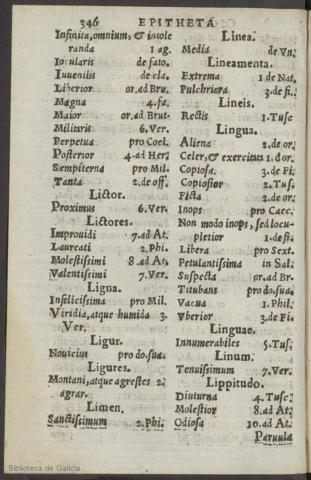 346 EPITHETA
Infinita, omnium, & intole
randa 1 ag.
Iocularis de fato.
Iuuenilis de cla.
Liberior or.ad Bru.
Magna 4.fa.
Maior or.ad Brut.
Militaris 6.Ver.
Perpetua pro Coel.
Posterior 4.ad Her.
Sempiterna pro Mil.
Tanta 2.de off.
Lictor.
Proximus 6.Ver.
Lictores.
Improuidi 7.ad At.
Laureati 2.Phi.
Molestissimi 8.ad At.
Valentissimi 7.Ver.
Ligna.
Infelicissima pro Mil.
Viridia, atque humida 3.
Ver.
Ligur.
Nouicius pro do.sua.
Ligures.
Montani, atque agrestes 2.
agrar.
Limen.
Sanctissimum 2.Phi.
Linea.
Media de Vn.
Lineamenta.
Extrema 1.de Nat.
Pulchriora 3.de fi.
Lineis.
Rectis 1.Tusc
Lingua.
Aliena 2.de or.
Celer, & exercitus 1.dor.
Copiosa 3.de Fi.
Copiosior 2.Tus.
Ficta 2.de or.
Inops pro Caec.
Non modo inops, sed locu-
pletior 1.de fi.
Libera pro Sext.
Petulantissima in Sal.
Suspecta or.ad Br.
Titubans pro do.sua.
Vacua 1.Phil.
Vberior 3.de Fi.
Linguae.
Innumerabiles 5.Tus.
Linum.
Tenuissimum 7.Ver.
Lippitudo.
Diuturna 4.Tusc.
Molestior 8.ad At.
Odiosa 10.ad At.
Paruula
Biblioteca de Galicia